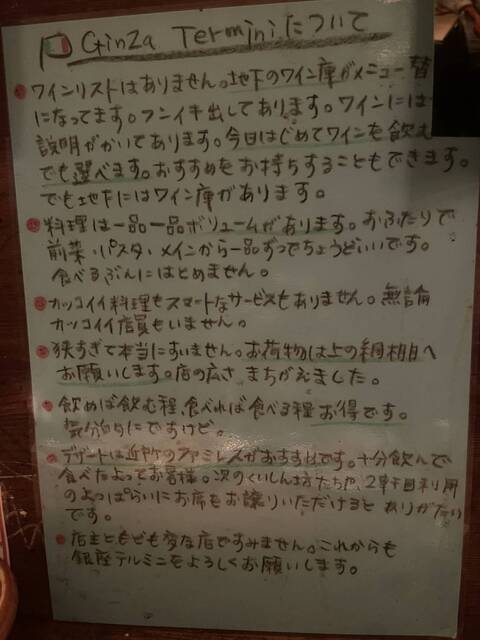 GinZa Termini について
ワインリストはありません。地下のワイン庫がメニュー替
になってます。フンイキ出してあります。ワインには
説明がかいてあります。今日はじめてワインを飲む
でも選べます。おすすめをお持ちすることもできます。
でも地下にはワイン庫があります。
料理は一品一品ボリュームがあります。おふたりで
前菜・パスタ・メインから一品ずつでちょうどいいです。
食べるぶんにはとめません。
カッコイイ料理もスマートなサービスもありません。無論
カッコイイ店員もいません。
狭すぎて本当にすいません。お荷物は上の網棚へ
お願いします。店の広さ まちがえました。
飲めば飲む程、食べれば食べる程 お得です。
気分的にですけど。
デザートは近所のファミレスがおすすめです。十分飲んで
食べたよってお客様。次のくいしん坊たちや、2軒目利用
のよっぱらいにお席をお譲りいただけると ありがたい
です。
店主ともども変な店ですみません。これからも
銀座テルミニをよろしくお願いします。